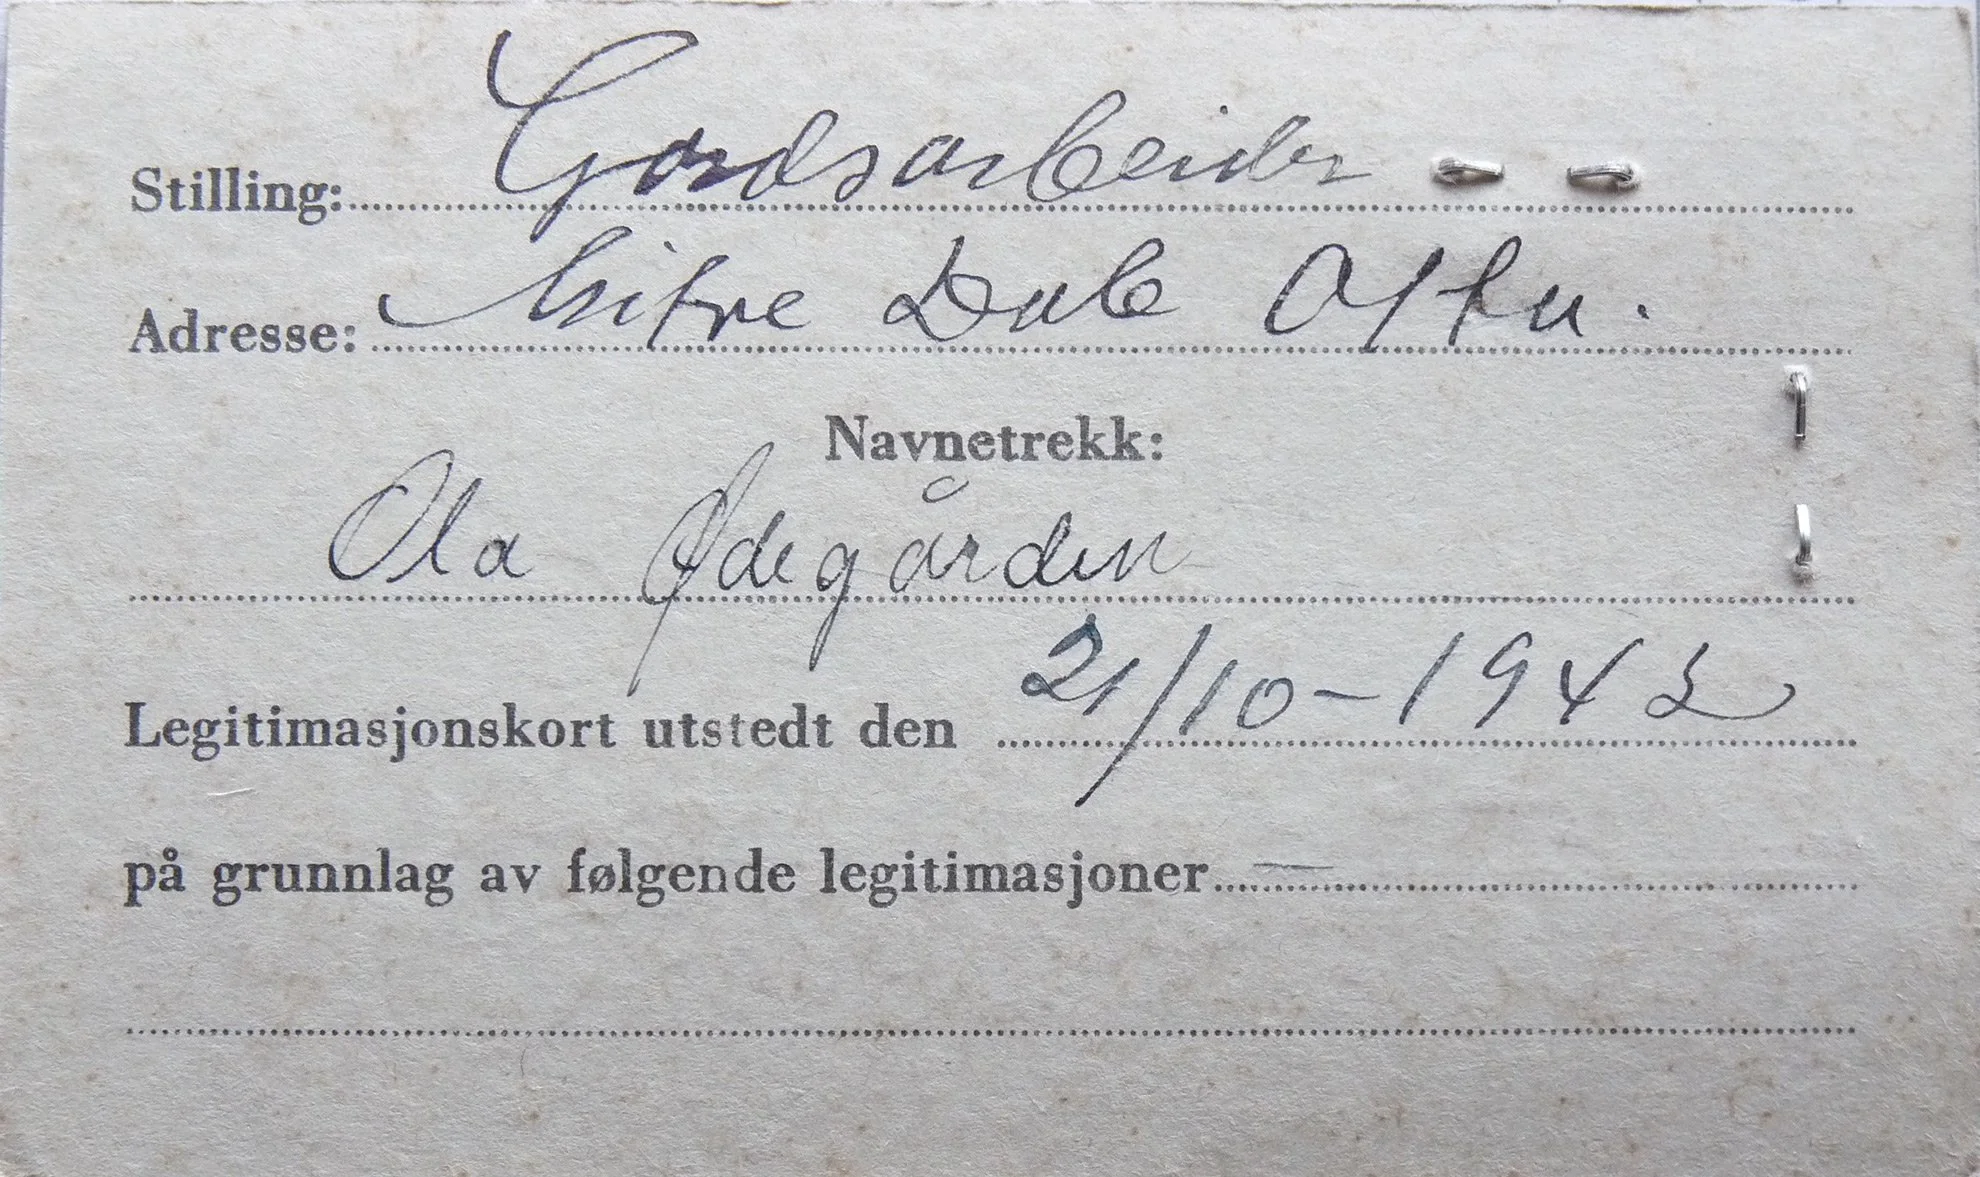 Stilling: Gardsarbeider
Adresse: Dale
Navnetrekk:
Ola Ødegården
Legitimasjonskort utstedt den 21/10-1942
på grunnlag av følgende legitimasjoner —